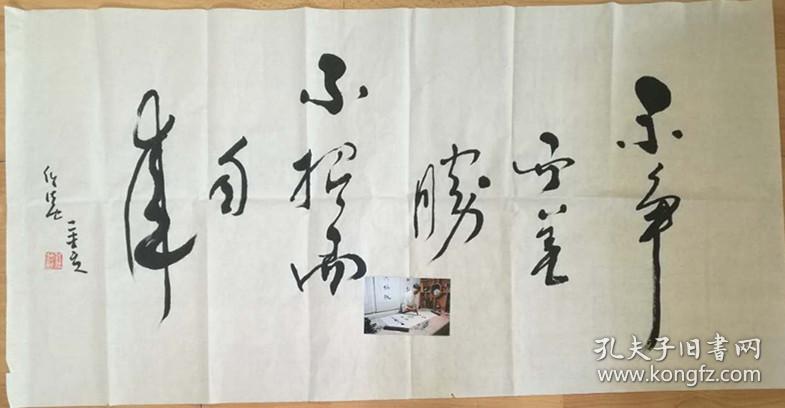 不争
而善
勝
不招而
自
来
孔夫子旧书网
www.kongfz.com